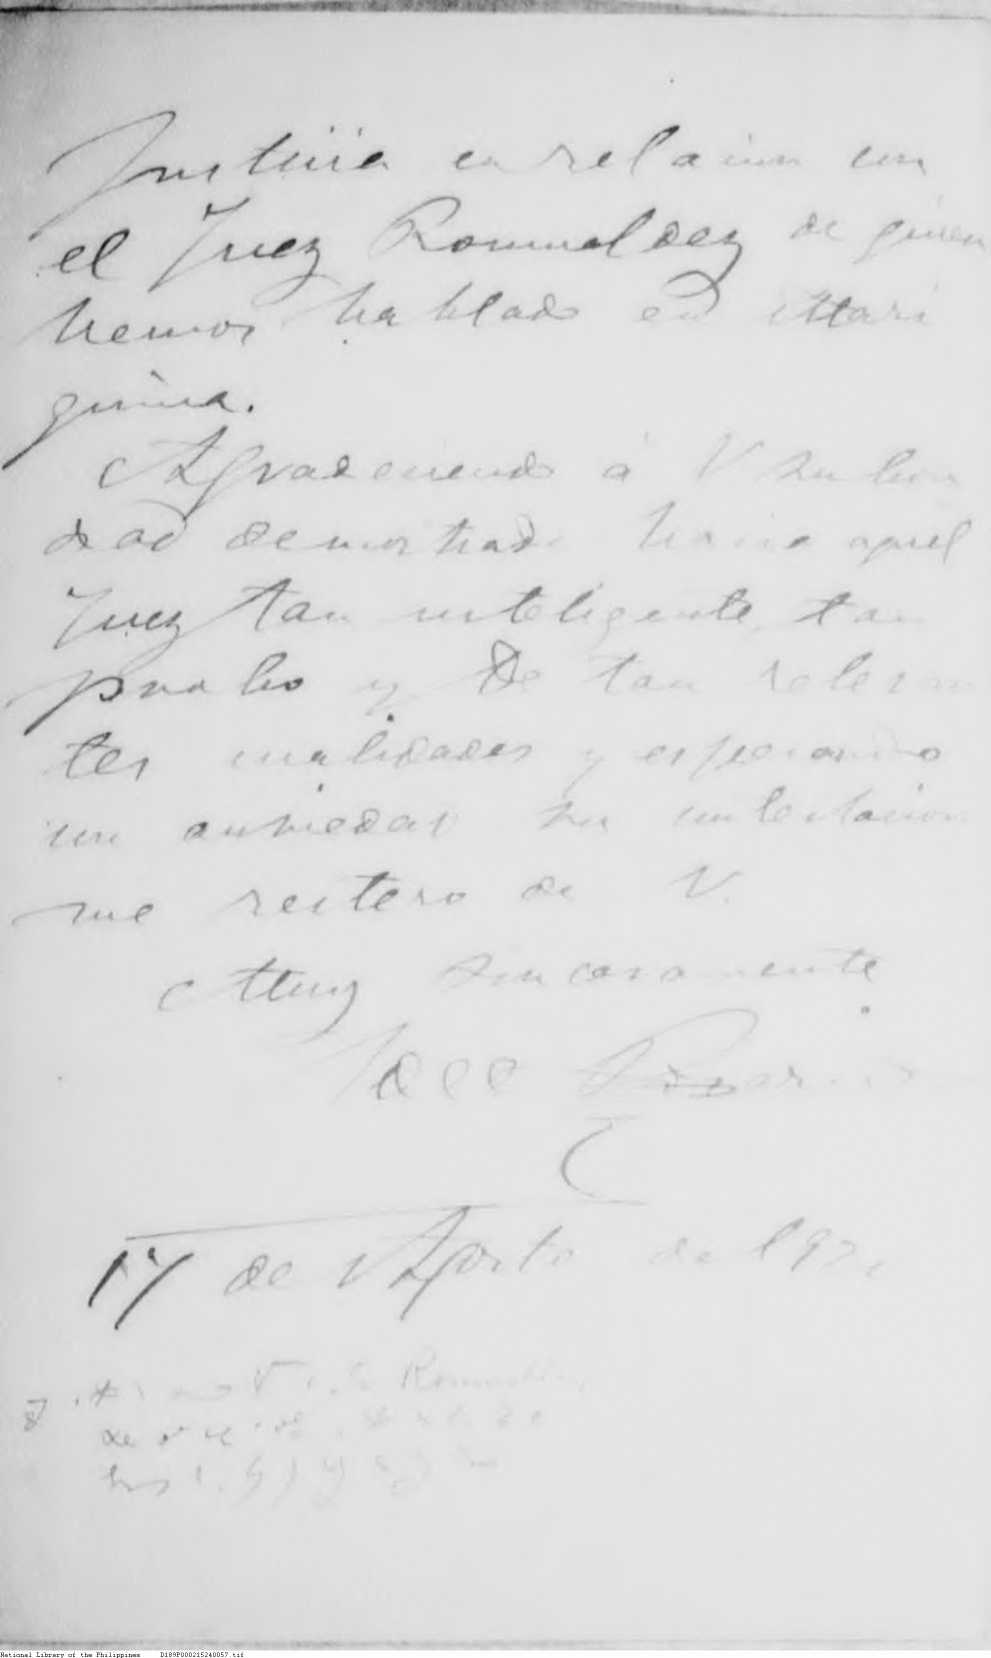 Justicia en relacion con
el Juez Romualdez de quien
hemos hablado en Mari
quina.
Agradeciendo á V su bon
dad demostrada hacia aquel
Juez tan inteligente, tan
probo y de tan relevan
tes cualidades y esperando
con ansiedad su contestacion
me reitero de V.
Muy sinceramente
17 de Agosto de
National Library of the Philippines D189P000215240057.tif